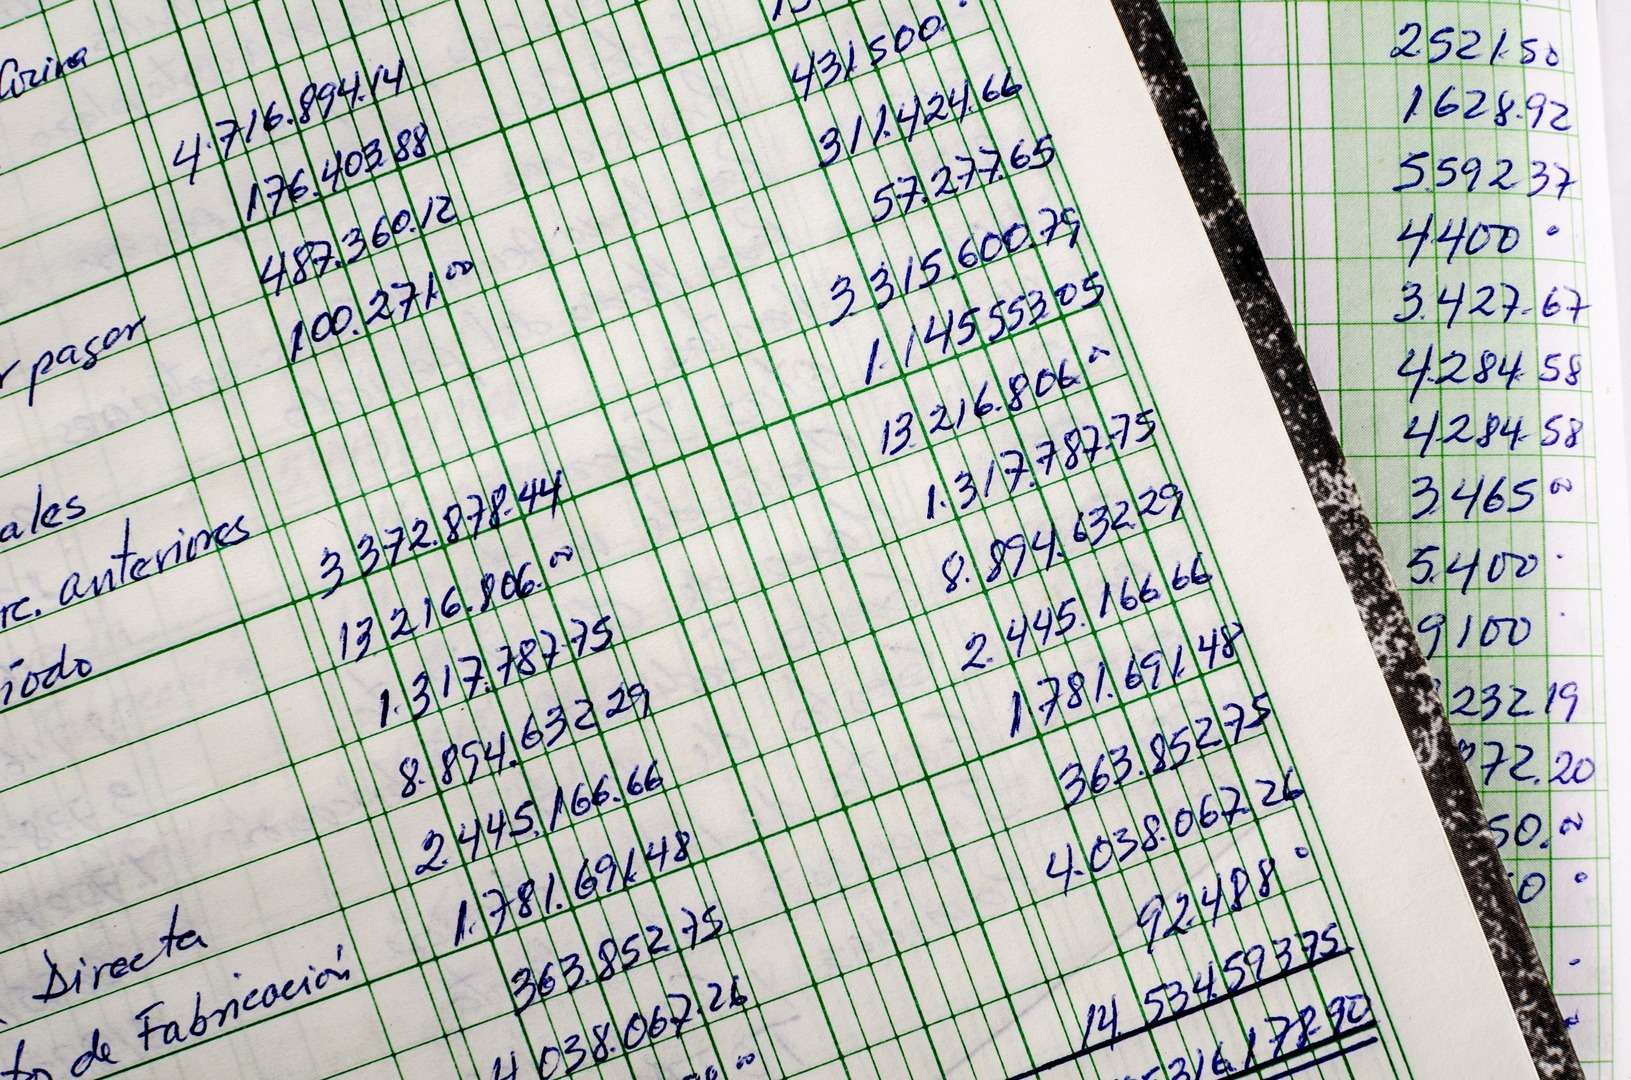 Corina
4.716.894.14
431.500.
176.403.88
311.424.66
487.360.12
57.277.65
pagar 100.271.00
3.315.600.79
1.145.553.05
ales
13.216.806.00
anteriores 3.372.878.44
1.317.787.75
íodo 13.216.806.00
8.894.632.29
1.317.787.75
2.445.166.66
8.894.632.29
1.781.691.48
2.445.166.66
363.852.75
Directa 1.781.691.48
4.038.067.26
de Fabricación 363.852.75
92.488
4.038.067.26
14.534.593.75
316.178.90
2521.50
1.628.92
5.592 37
4.400
3.427.67
4.284.58
4.284.58
3.465 00
5.400
9100
232 19
72.20
50.00
0